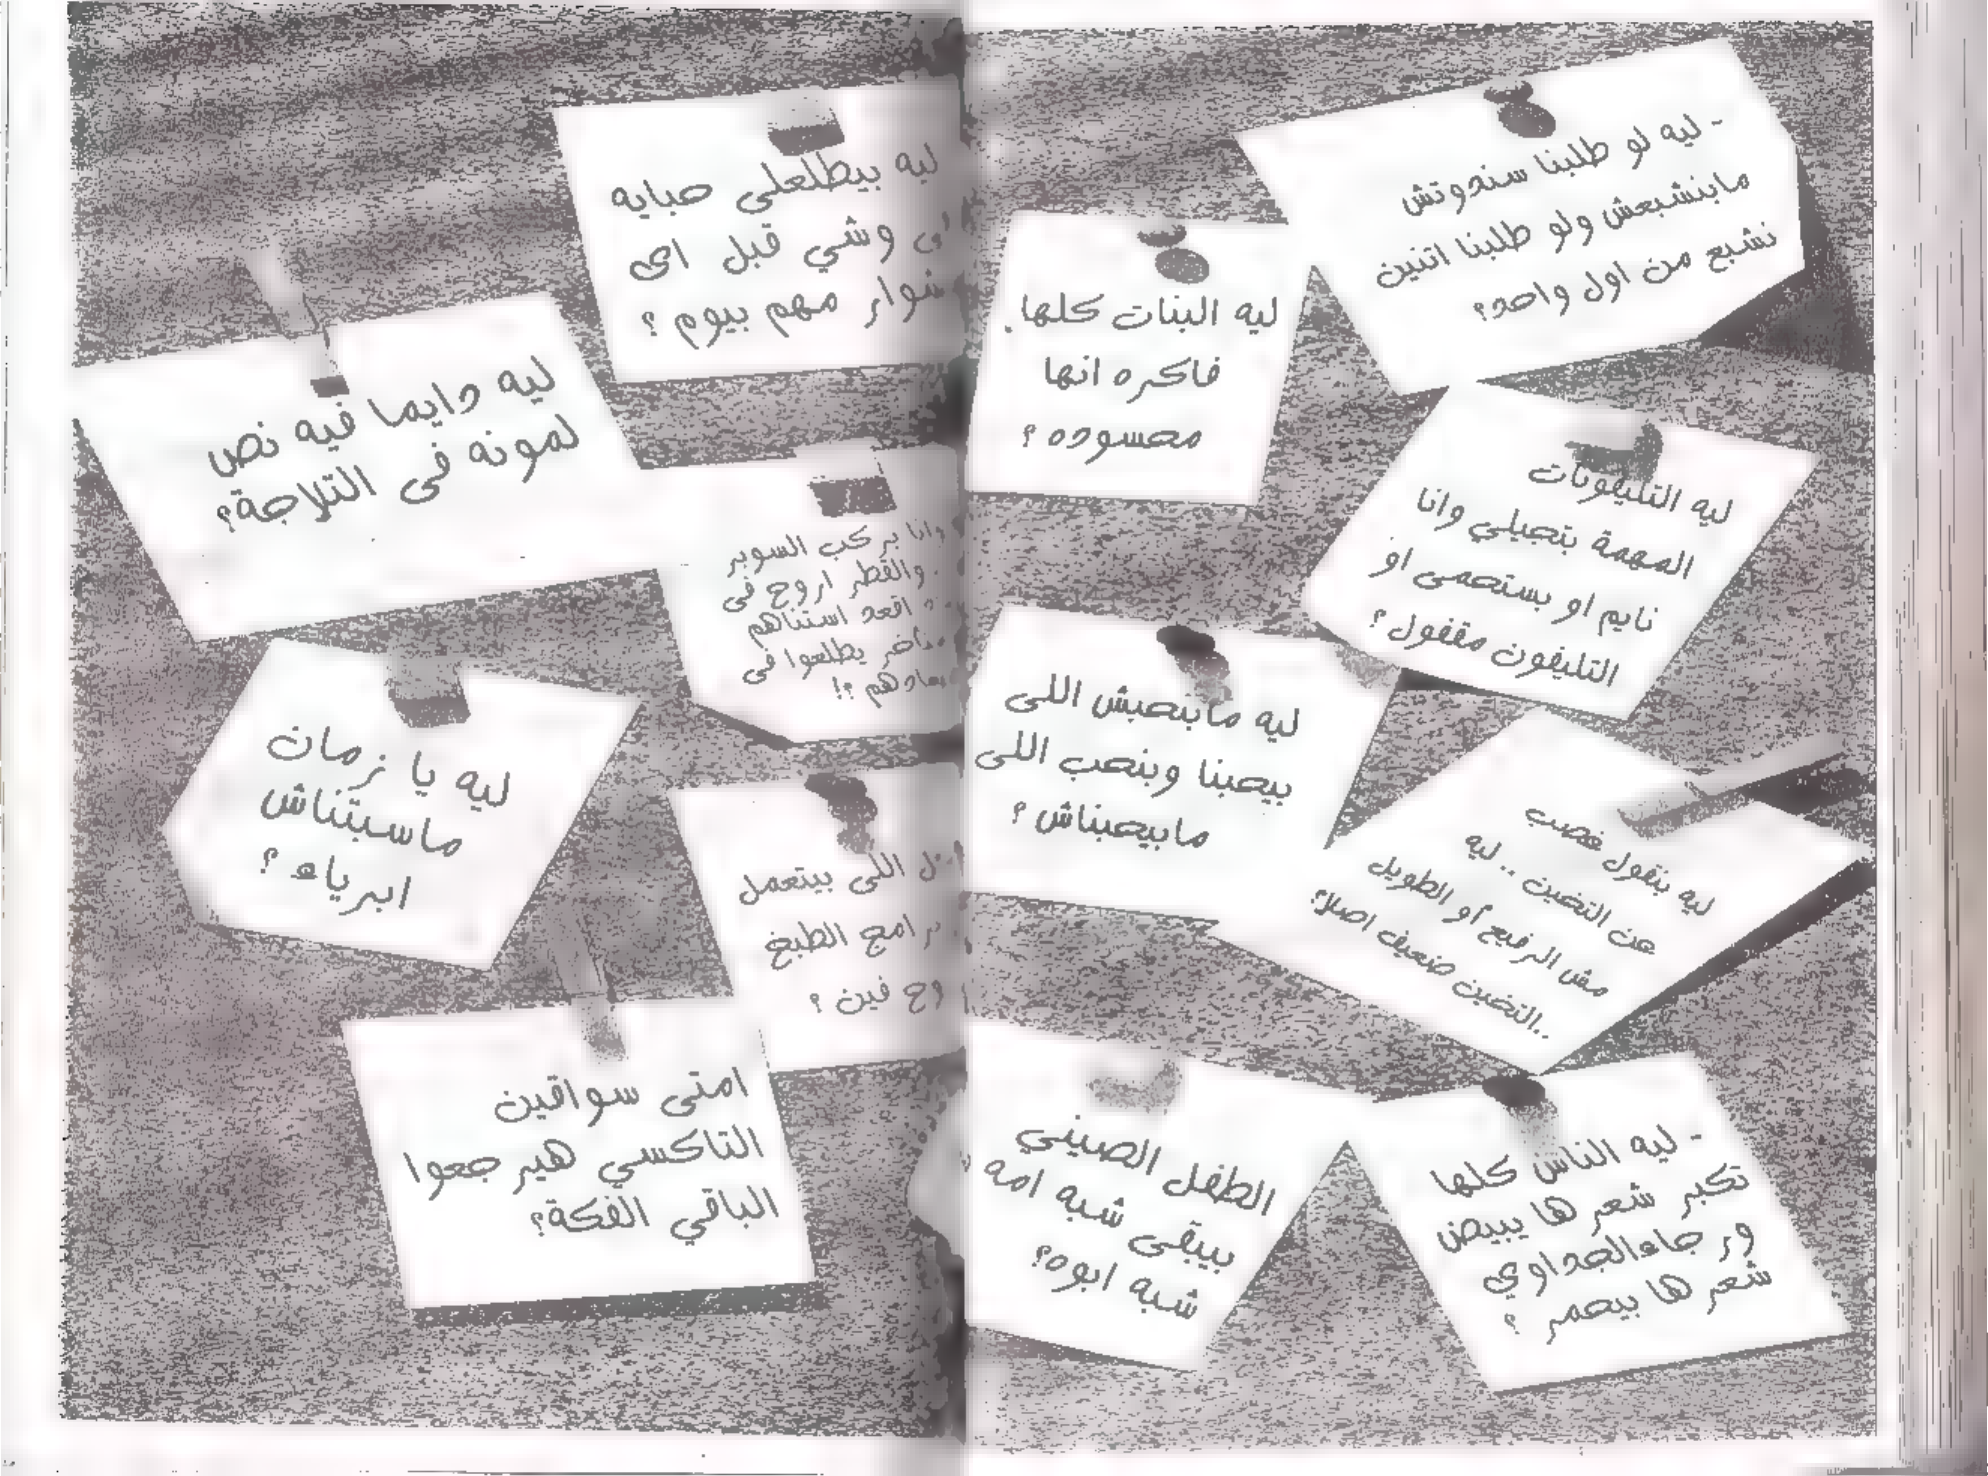 - ليه لو طلبنا سندوتش
مابنشبعش ولو طلبنا اتنين
نشبع من اول واحد؟
ليه البنات كلها
فاكره انها
محسوده ؟
ليه التليفونات
المهمة بتجيلي وانا
نايم او بستحمى او
التليفون مقفول ؟
ليه مابنحبش اللى
بيحبنا وبنحب اللى
مابيحبناش ؟
ليه بنقول غصب
عن التخين .. ليه
مش الرفيع أو الطويل
..التخين ضعيف اصلا؟
الطفل الصيني
بيبقى شبه امه
شبه ابوه؟
- ليه الناس كلها
تكبر شعرها يبيض
ورجاءالجداوي
شعرها بيحمر ؟
ليه بيطلعلي حبايه
وشي قبل اى
مهم بيوم ؟
ليه دايما فيه نص
لمونه فى التلاجة؟
وانا بركب السوبر
والقطر اروح فى
اقعد استناهم
يطلعوا فى
؟!
ليه يا زمان
ماسبتناش
ابرياء ؟
اللى بيتعمل
برامج الطبخ
فين ؟
امتى سواقين
التاكسي هيرجعوا
الباقي الفكة؟